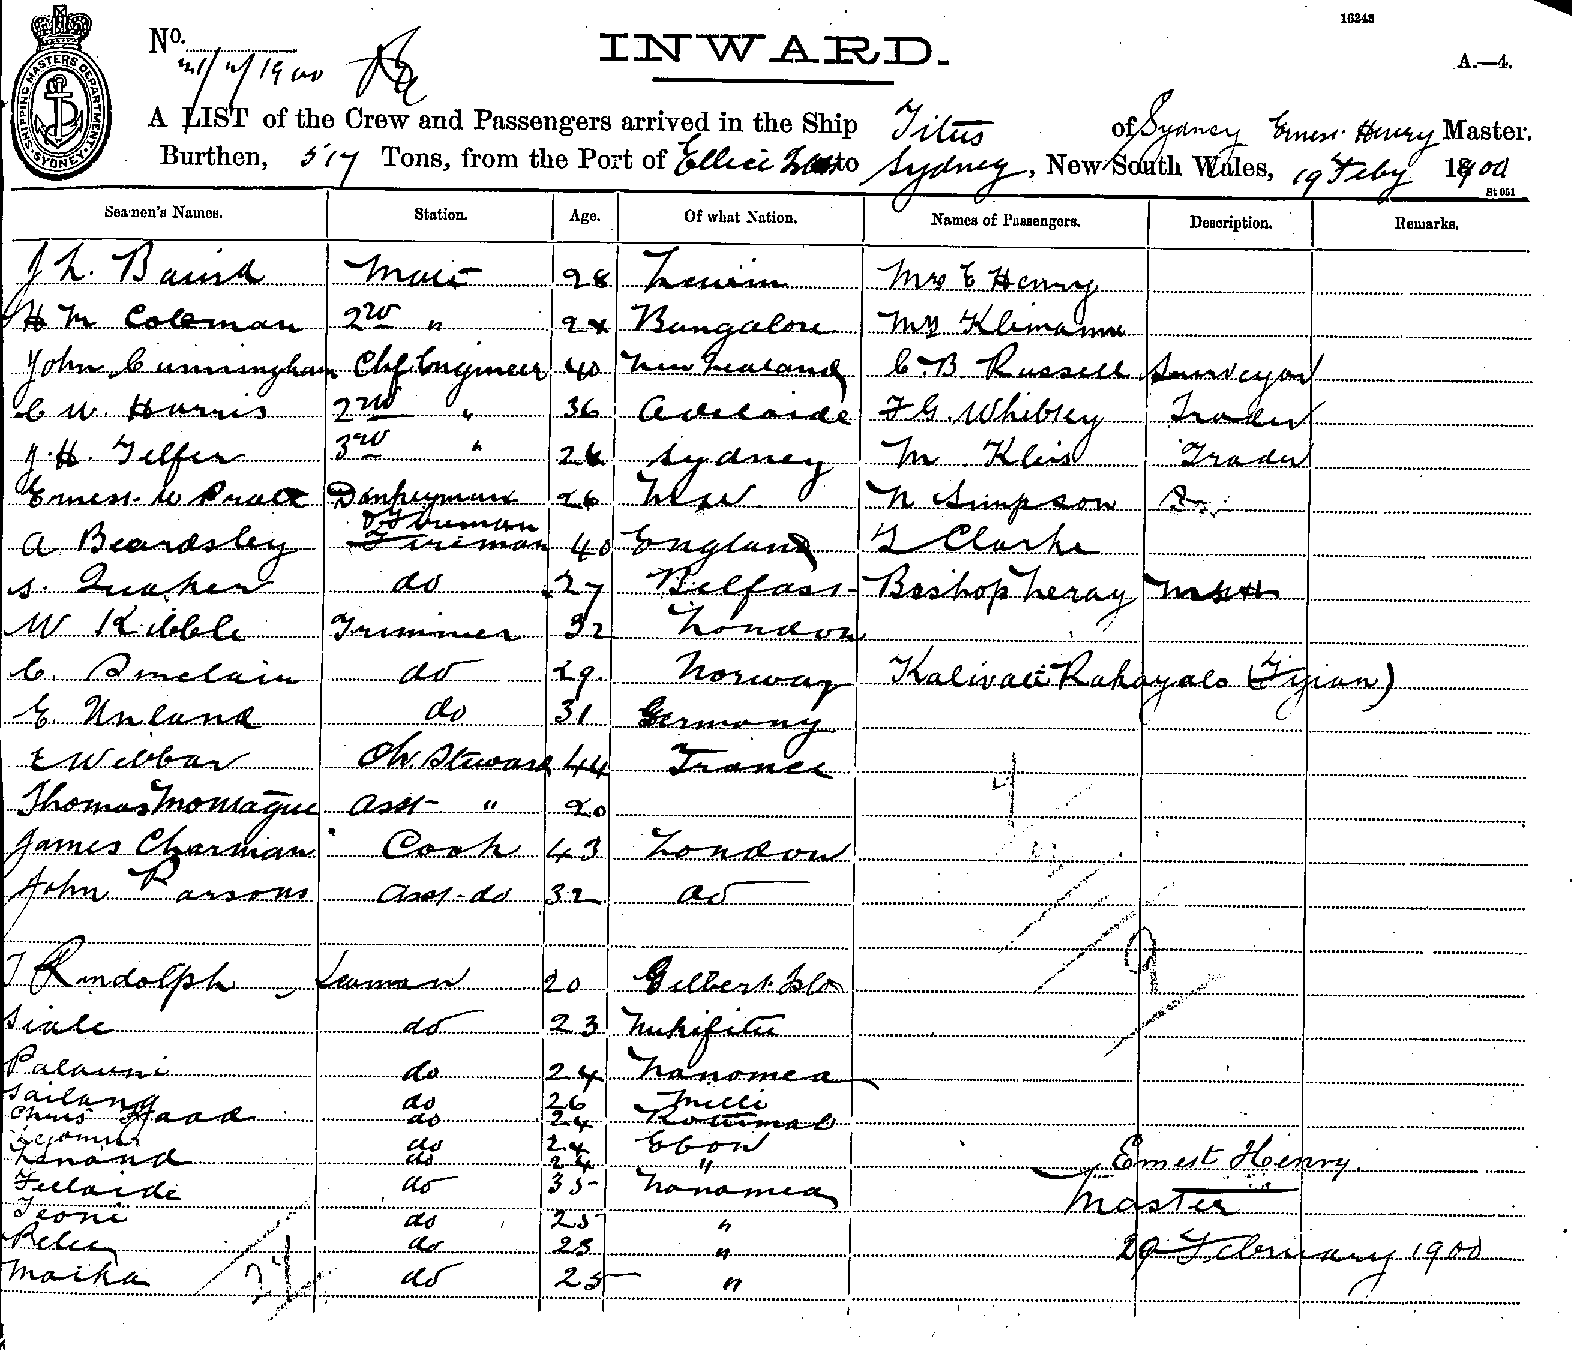 16243
No. 21/2/1900
INWARD.
A.—4.
SHIPPING MASTERS DEPARTMENT SYDNEY
A LIST of the Crew and Passengers arrived in the Ship Titus of Sydney Ernest Henry Master.
Burthen, 517 Tons, from the Port of Ellice to Sydney, New South Wales, 19 Feby 1900
St 051
Seamen's Names. Station. Age. Of what Nation. Names of Passengers. Description. Remarks.
J L. Baird Mate 28 Mrs E Henry
H M Coleman 2nd " 24 Bangalore Klimann
John Cunningham Chf Engineer 40 New Zealand C. B Russell Surveyor
C W Harris 2nd " 36 Adelaide F G. Whibley Trader
J. H. Telfer 3rd " 26 Sydney M Klein Trader
Ernest W Pratt Donkeyman 26 NSW N Simpson Do.
& Fireman
A Beardsley Fireman 40 England Clarke
S. Quaker do 27 Belfast Bishop Leray
W Kibble Trimmer 32 London
C. Sinclair do 29 Norway Kalivati Rahayalo (Fijian)
E Unland do 31 Germany
E Webbar Ch Steward 44 France
Thomas Montague Asst " 20
James Charman Cook 43 London
John Parsons Asst do 32 do
T Randolph Seaman 20 Gilbert Isls
Siale do 23 Nukifitu
Palauni do 24 Nanomea
Sailang do 26 Milli
Chris do 24
do 24 Ebon
Lenand do 24 "
do 35 Nanomea
Teoni do 25 "
do 25 "
Maika do 25 "
Ernest Henry
Master
20 February 1900